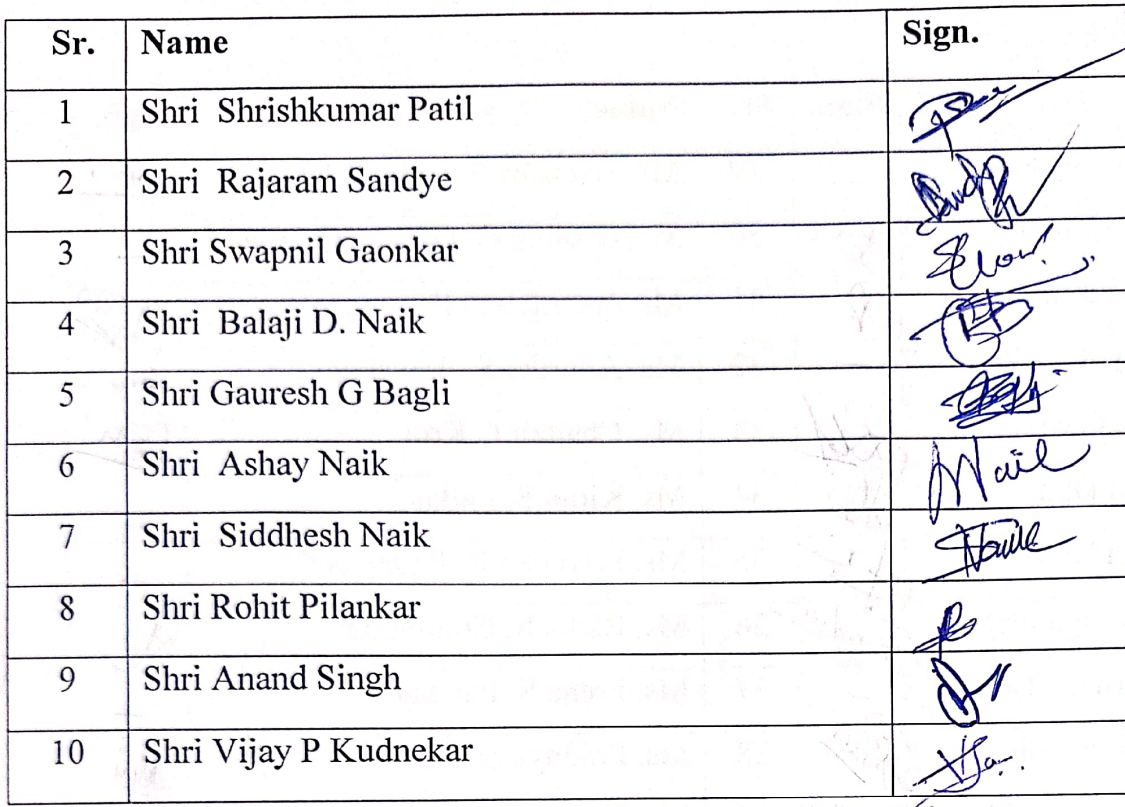 Sr. Name Sign.
1 Shri Shrishkumar Patil
2 Shri Rajaram Sandye
3 Shri Swapnil Gaonkar
4 Shri Balaji D. Naik
5 Shri Gauresh G Bagli
6 Shri Ashay Naik Naik
7 Shri Siddhesh Naik
8 Shri Rohit Pilankar
9 Shri Anand Singh
10 Shri Vijay P Kudnekar